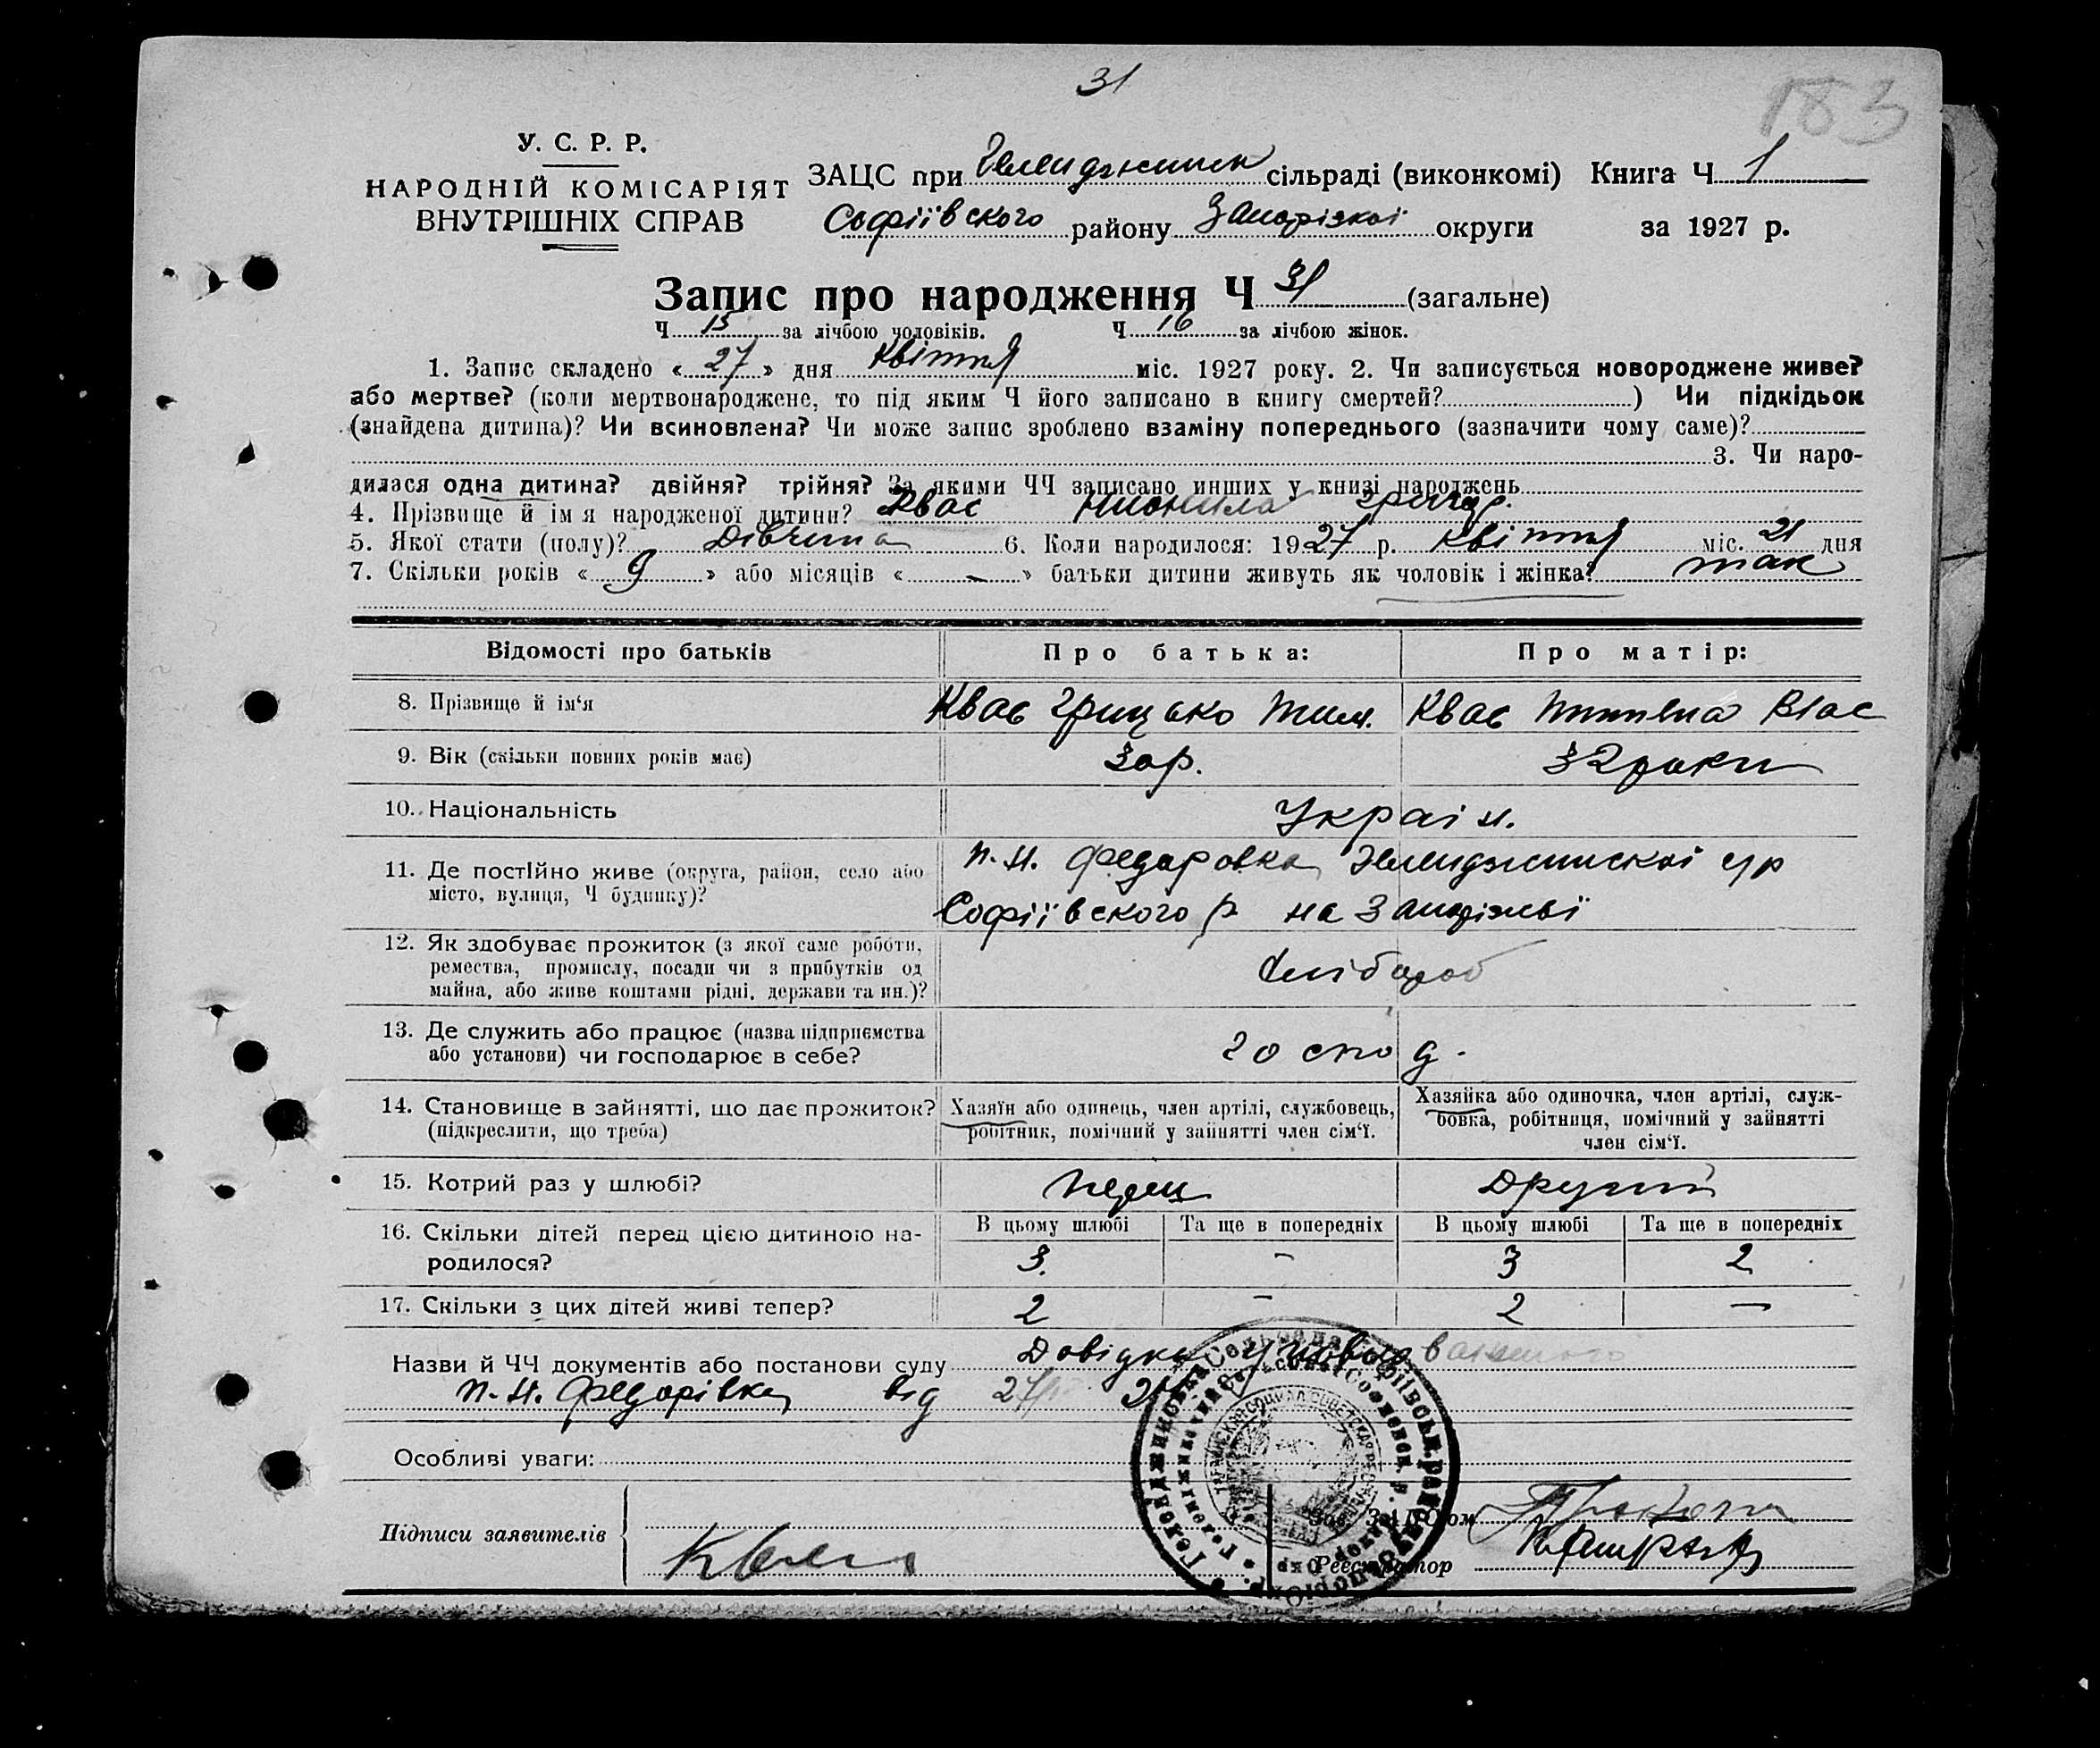 31
183
У. С. Р. Р.
НАРОДНІЙ КОМІСАРІЯТ
ВНУТРІШНІХ СПРАВ
ЗАЦС при сільраді (виконкомі) Книга Ч 1
Софіївского району Запорізкої округи за 1927 р.
Запис про народження Ч 31 (загальне)
Ч 15 за лічбою чоловіків. Ч 16 за лічбою жінок.
1. Запис складено « 27 » дня Квітня міс. 1927 року. 2. Чи записується новороджене живе?
або мертве? (коли мертвонароджене, то під яким Ч його записано в книгу смертей? ) Чи підкідьок
(знайдена дитина)? Чи всиновлена? Чи може запис зроблено взаміну попереднього (зазначити чому саме)?
3. Чи наро-
дилася одна дитина? двійня? трійня? За якими ЧЧ записано инших у книзі народжень
4. Прізвище й ім я народженої дитини? Квас Григор.
5. Якої стати (полу)? Дівчина 6. Коли народилося: 1927 р. Квітня міс. 21 дня
7. Скільки років « 9 » або місяців « - » батьки дитини живуть як чоловік і жінка? так
Відомості про батьків Про батька: Про матір:
8. Прізвище й ім'я Квас Грицько Тим. Квас Влас
9. Вік (скільки повних років має) 30 р. 32 роки
10. Національність Україн.
11. Де постійно живе (округа, район, село або п. н. Федоровка с/р
місто, вулиця, Ч будинку)? Софіївского р. на Запоріжжі
12. Як здобуває прожиток (з якої саме роботи, Хлібороб
ремества, промислу, посади чи з прибутків од
майна, або живе коштами рідні, держави та ин.)?
13. Де служить або працює (назва підприємства господ.
або установи) чи господарює в себе?
14. Становище в зайнятті, що дає прожиток? Хазяїн або одинець, член артілі, службовець, Хазяйка або одиночка, член артілі, служ-
(підкреслити, що треба) робітник, помічний у зайнятті член сім'ї. бовка, робітниця, помічний у зайнятті
член сім'ї.
15. Котрий раз у шлюбі? Другий
В цьому шлюбі Та ще в попередніх В цьому шлюбі Та ще в попередніх
16. Скільки дітей перед цією дитиною на- 3. - 3 2
родилося?
17. Скільки з цих дітей живі тепер? 2 - 2 -
Назви й ЧЧ документів або постанови суду Довідка
п. н. Федорівка від
Особливі уваги:
Підписи заявителів Квас
Зав. ЗАЦСом
Реєстратор